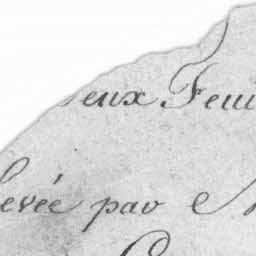 eux Feui
levée par